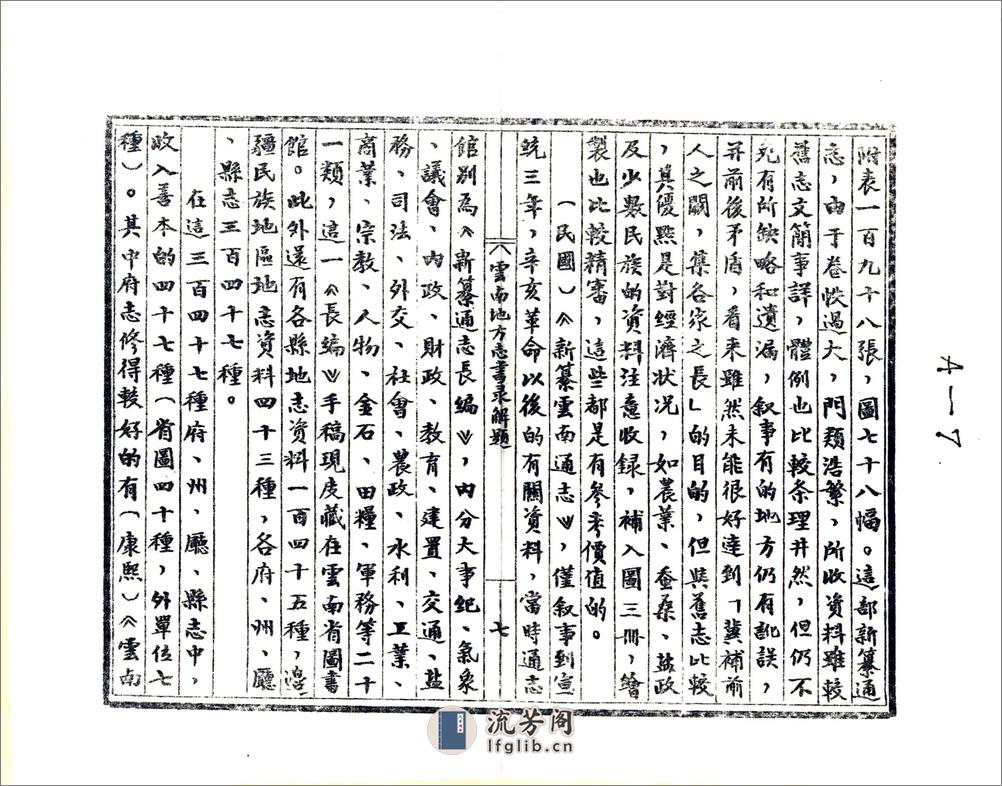 附表一百九十八張，圖七十八幅。這部新纂通
志，由于卷帙過大，門類浩繁，所收資料雖較
舊志文簡事詳，體例也比較条理井然，但仍不
免有所缺略和遺漏，叙事有的地方仍有訛誤，
并前後矛盾，看来雖然未能很好達到「冀補前
人之闕，集各家之長」的目的，但與舊志比較
，其優點是對經濟状况，如農業、蚕桑、盐政
及少數民族的資料注意收録，補入圖三冊，繪
製也比較精審，這些都是有參考價值的。
（民國）《新纂雲南通志》，僅叙事到宣
統三年，辛亥革命以後的有關資料，當時通志
《雲南地方志書录解題 七
館别為《新纂通志長編》，内分大事紀、氣象
、議會、内政、財政、教育、建置、交通、盐
務、司法、外交、社會、農政、水利、工業、
商業、宗教、人物、金石、田糧、軍務等二十
一類，這一《長編》手稿現庋藏在雲南省圖書
館。此外還有各縣地志資料一百四十五種，邊
疆民族地區地志資料四十三種，各府、州、廳
、縣志三百四十七種。
在這三百四十七種府、州、廳、縣志中，
收入善本的四十七種（省圖四十種，外單位七
種）。其中府志修得較好的有（康熙）《雲南
4—7
流芳阁
lfglib.cn